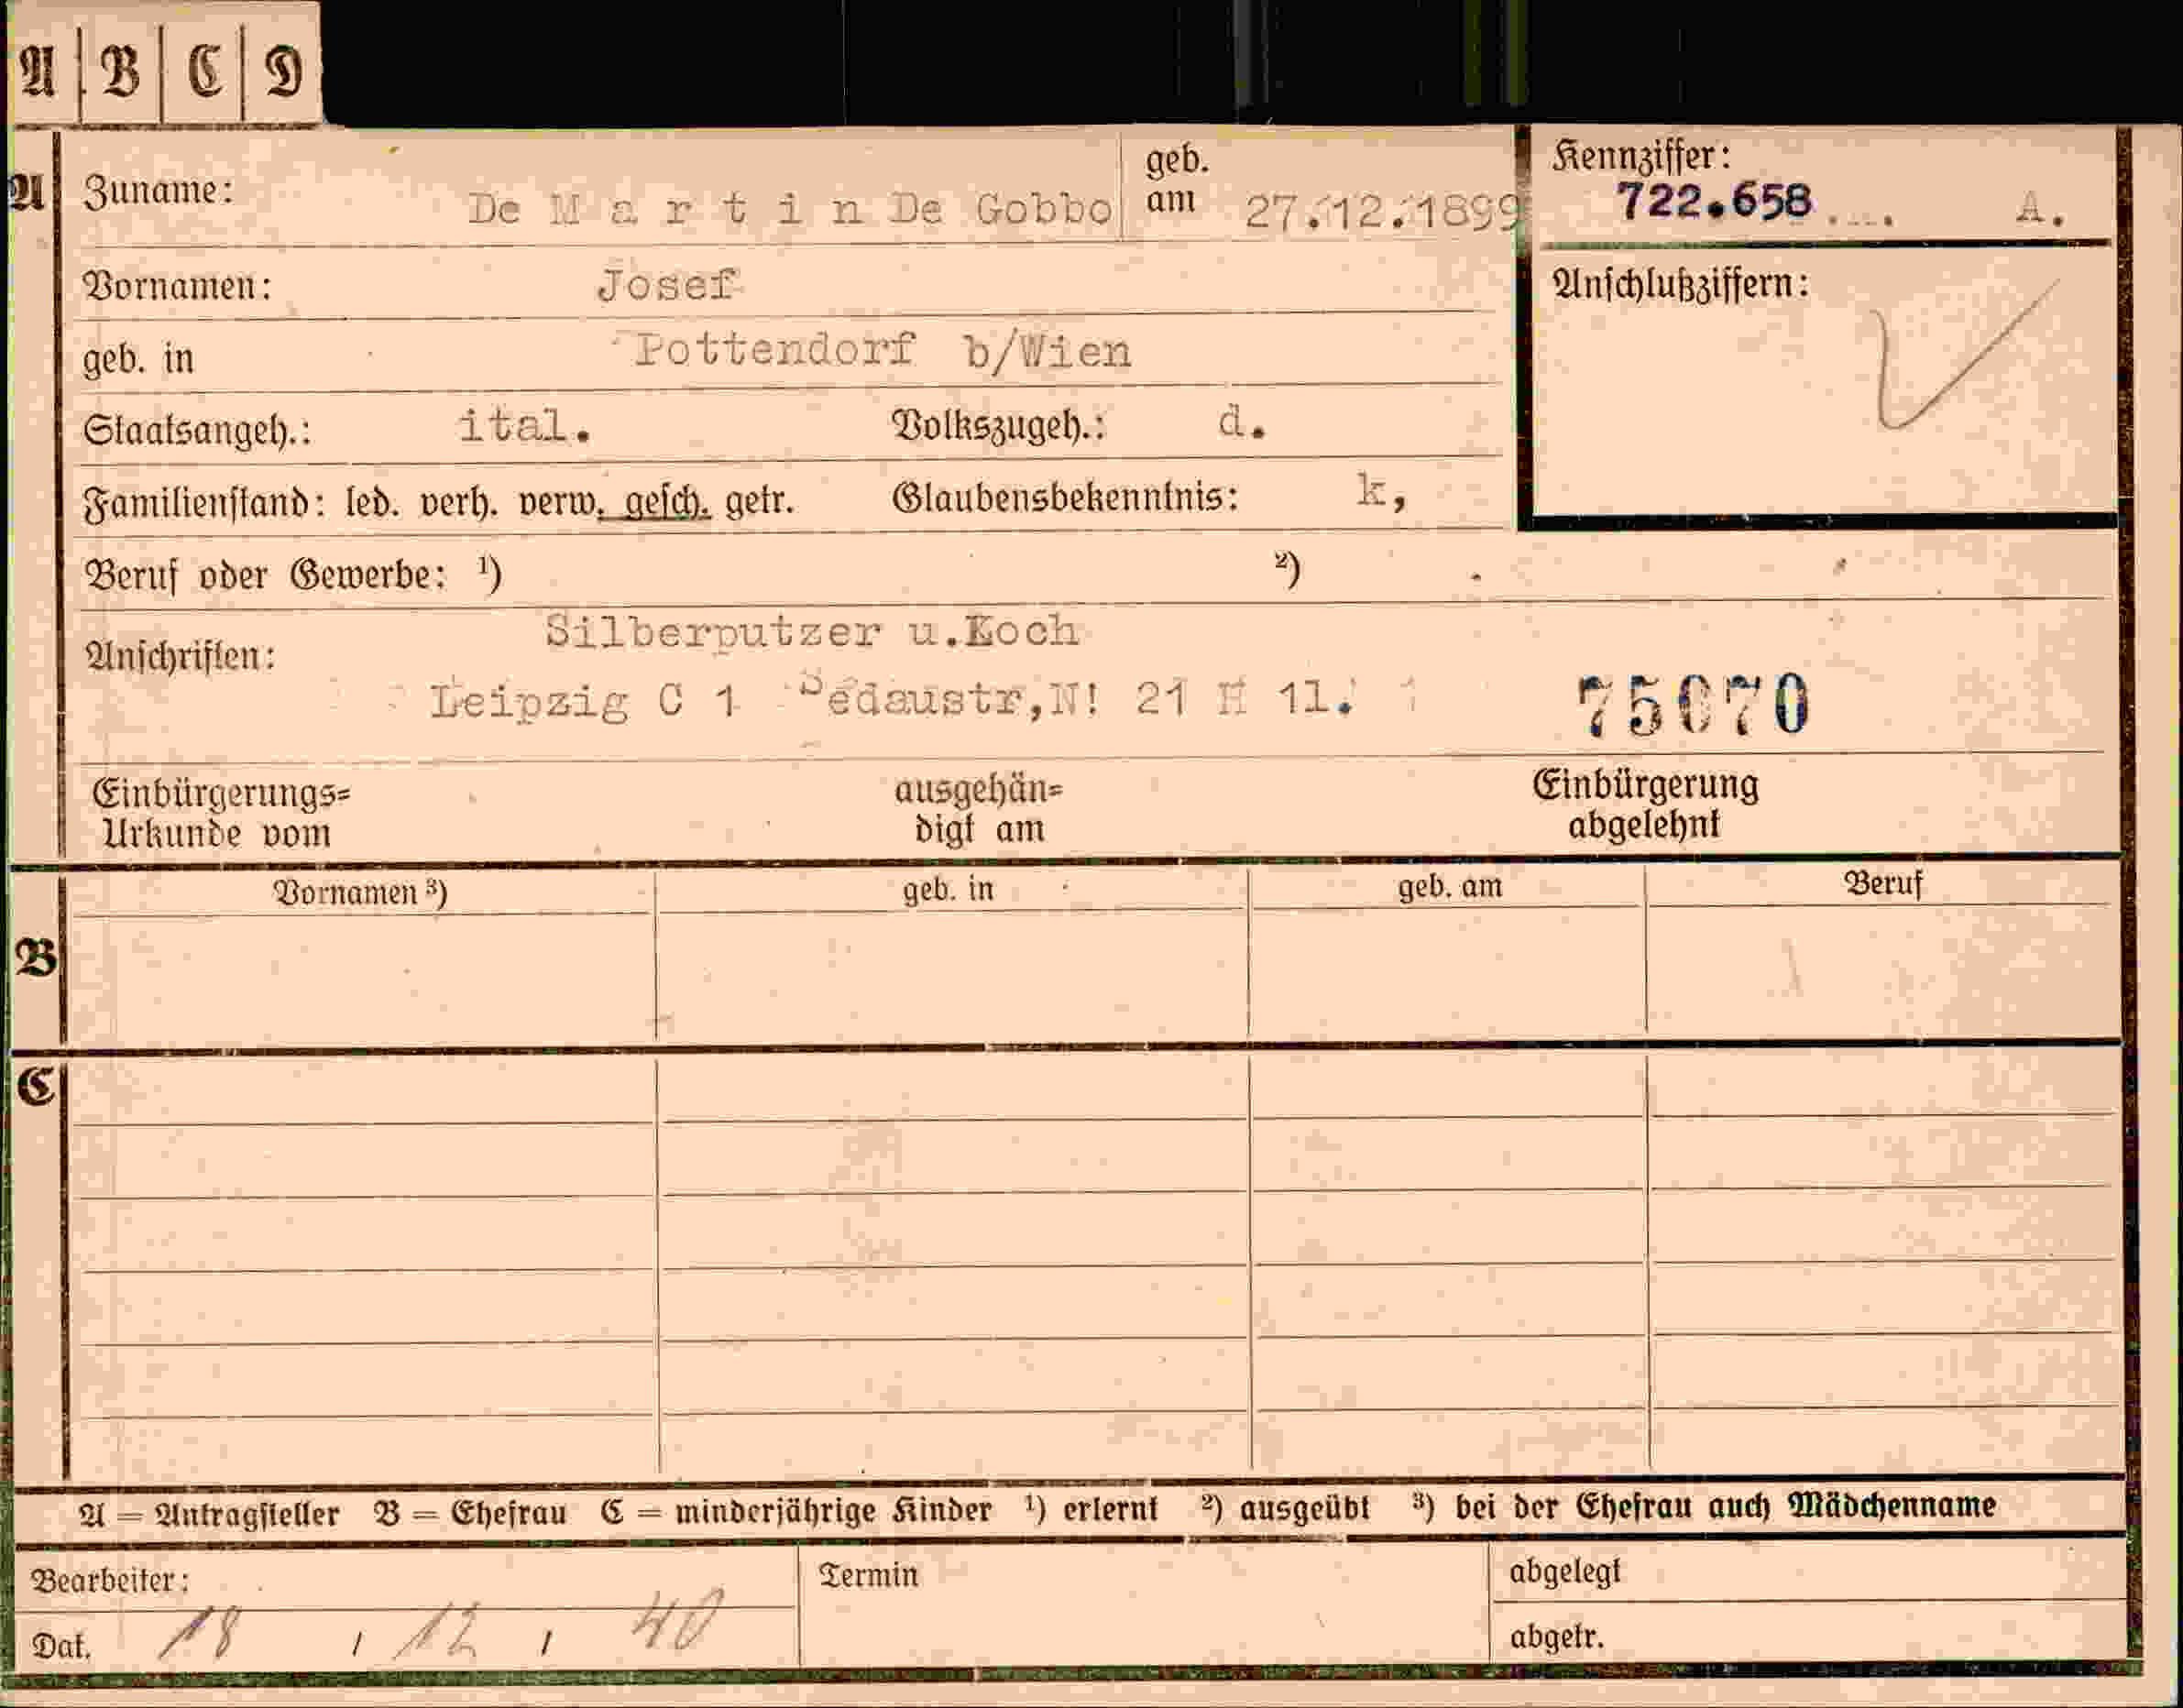 A B C D
A Zuname: De M a r t i n De Gobbo geb. am 27.12.1899 Kennziffer: 722.658 .... A.
Vornamen: Josef Anschlußziffern:
geb. in Pottendorf b/Wien
Staatsangeh.: ital. Volkszugeh.: d.
Familienstand: led. verh. verw. gesch. getr. Glaubensbekenntnis: k,
Beruf oder Gewerbe: ¹) ²)
Silberputzer u.Koch
Anschriften:
Leipzig C 1 21 H 11. 75070
Einbürgerungs= ausgehän= Einbürgerung
Urkunde vom digt am abgelehnt
B Vornamen ³) geb. in geb. am Beruf
C
A = Antragsteller B = Ehefrau C = minderjährige Kinder ¹) erlernt ²) ausgeübt ³) bei der Ehefrau auch Mädchenname
Bearbeiter: Termin abgelegt
Dat. 18 / 12 / 40 abgetr.